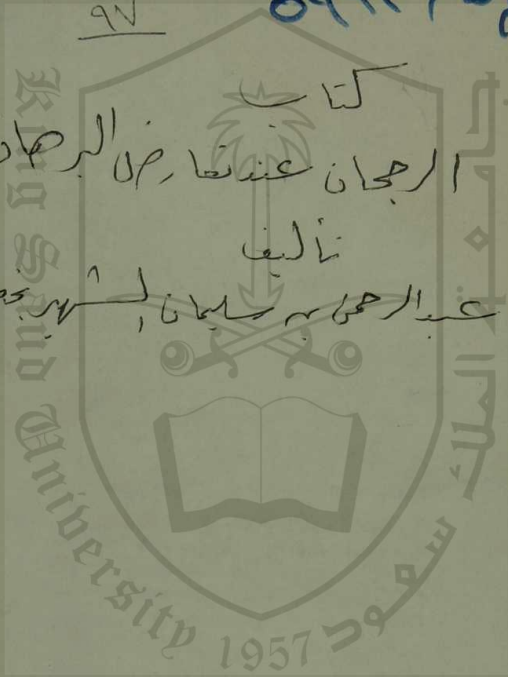 ٩٧
كتاب
الرجحان عند تعارض البرها
تأليف
عبد الرحمن بن سليمان الشهير
King Saud University
1957
جامعة الملك سعود